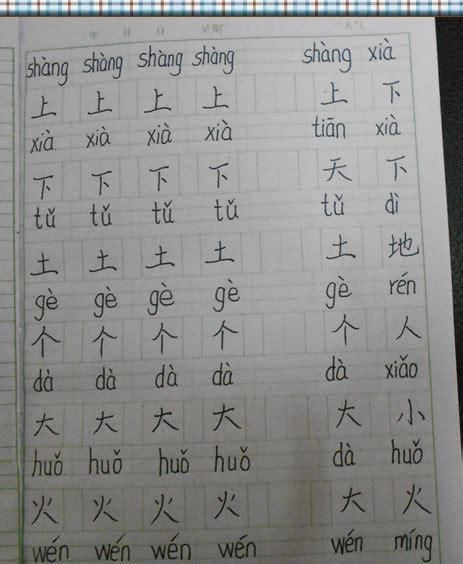 年 月 日 星期 天气
shàng shàng shàng shàng shàng xià
上 上 上 上 上 下
xià xià xià xià tiān xià
下 下 下 下 天 下
tǔ tǔ tǔ tǔ tǔ dì
土 土 土 土 土 地
gè gè gè gè gè rén
个 个 个 个 个 人
dà dà dà dà dà xiǎo
大 大 大 大 大 小
huǒ huǒ huǒ huǒ dà huǒ
火 火 火 火 大 火
wén wén wén wén wén míng